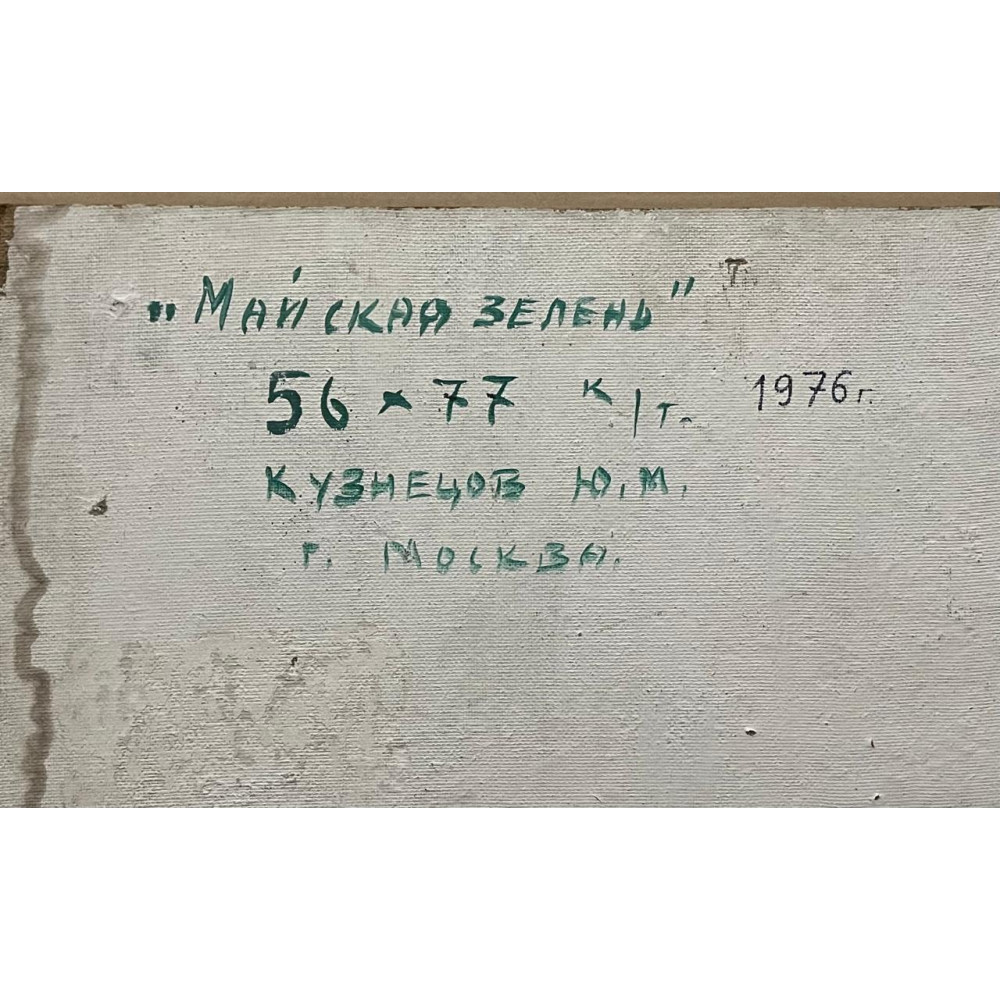 „Майская зелень”
56 x 77 к/т. 1976 г.
Кузнецов Ю.М.
г. Москва.